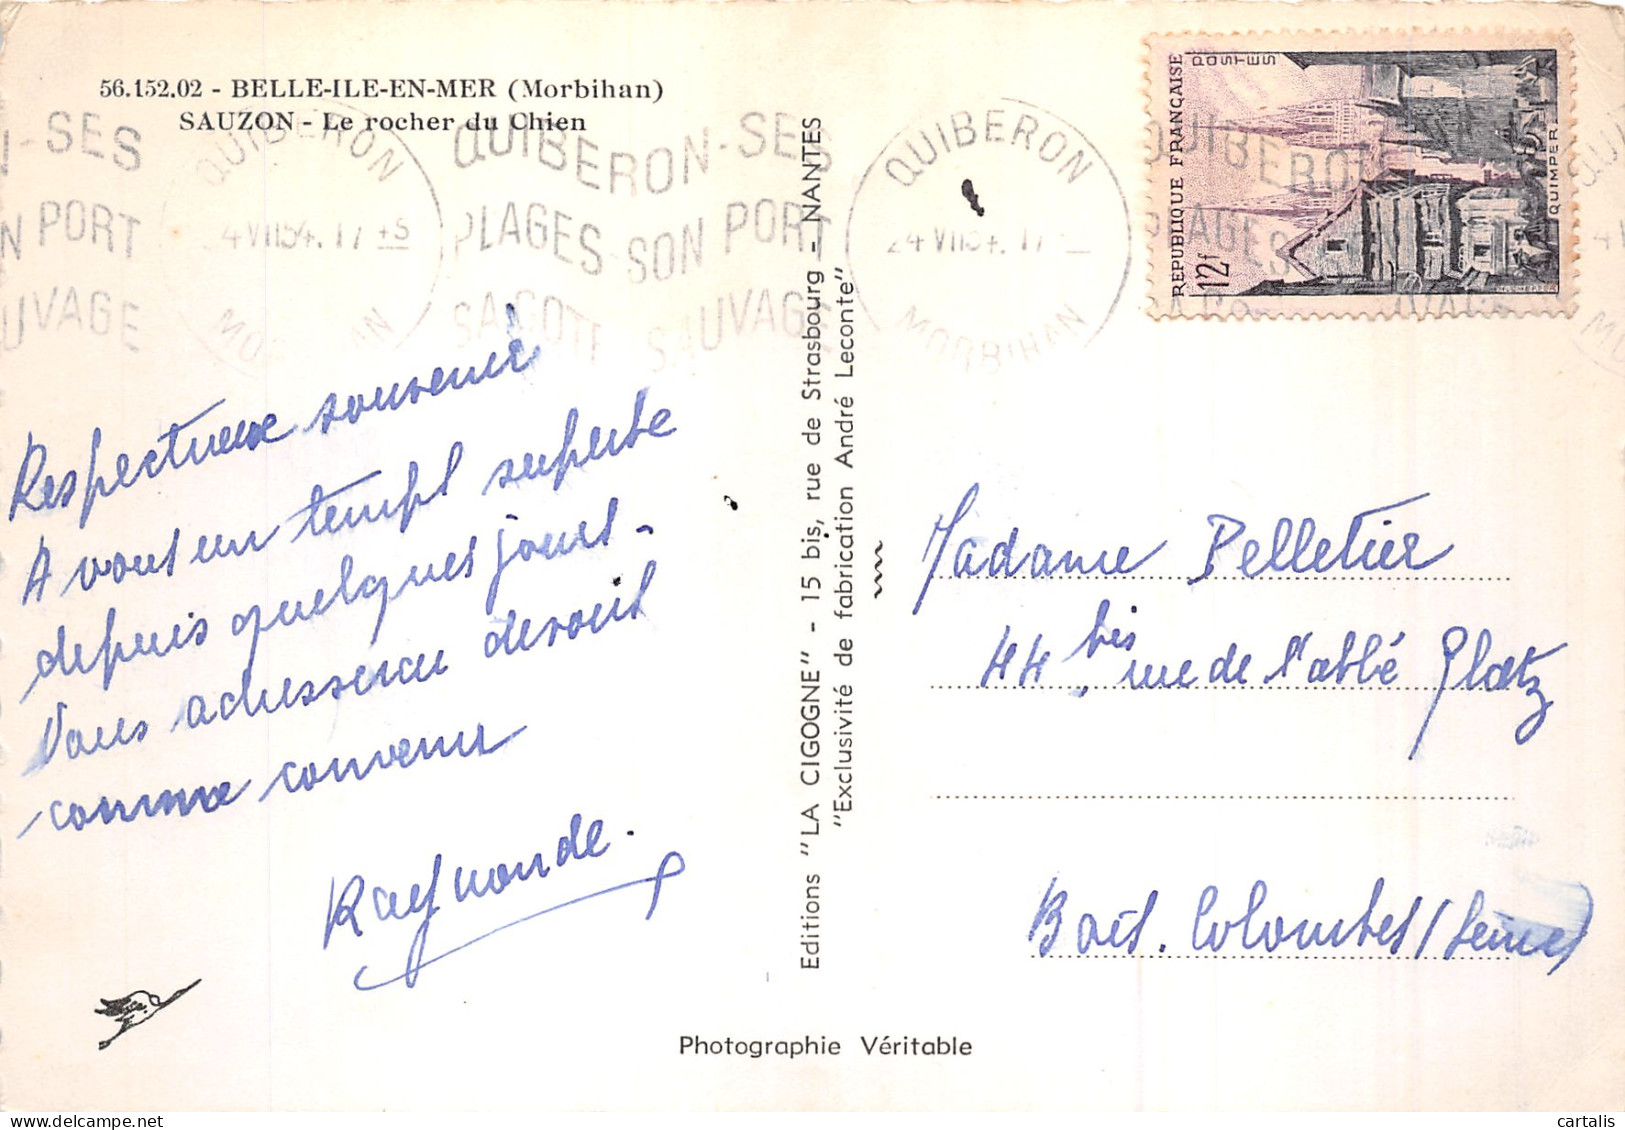 56.152.02 - BELLE-ILE-EN-MER (Morbihan)
SAUZON - Le rocher du Chien
QUIBERON
24 VII 54. 17 45
MORBIHAN
QUIBERON-SES
PLAGES-SON PORT
SA COTE SAUVAGE
QUIBERON
24-VII 54. 17
MORBIHAN
RÉPUBLIQUE FRANÇAISE
POSTES
12f
QUIMPER
Respectueux souvenir
A vous un temps superbe
depuis quelques jours -
Vous adresserai devoirs
comme convenu
Raymonde.
Editions "LA CIGOGNE" - 15 bis, rue de Strasbourg - NANTES
"Exclusivité de fabrication André Leconte"
Madame Pelletier
44 bis rue de l'abbé Glatz
Bois. Colombes (Seine)
Photographie Véritable
cartalis